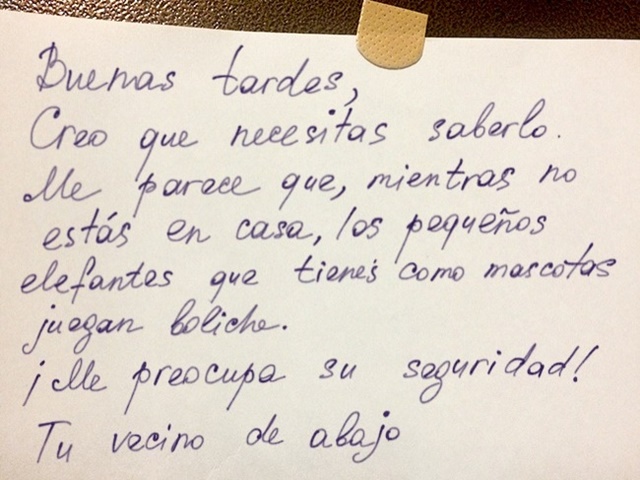 Buenas tardes,
Creo que necesitas saberlo.
Me parece que, mientras no
estás en casa, los pequeños
elefantes que tienes como mascotas
juegan boliche.
¡Me preocupa su seguridad!
Tu vecino de abajo